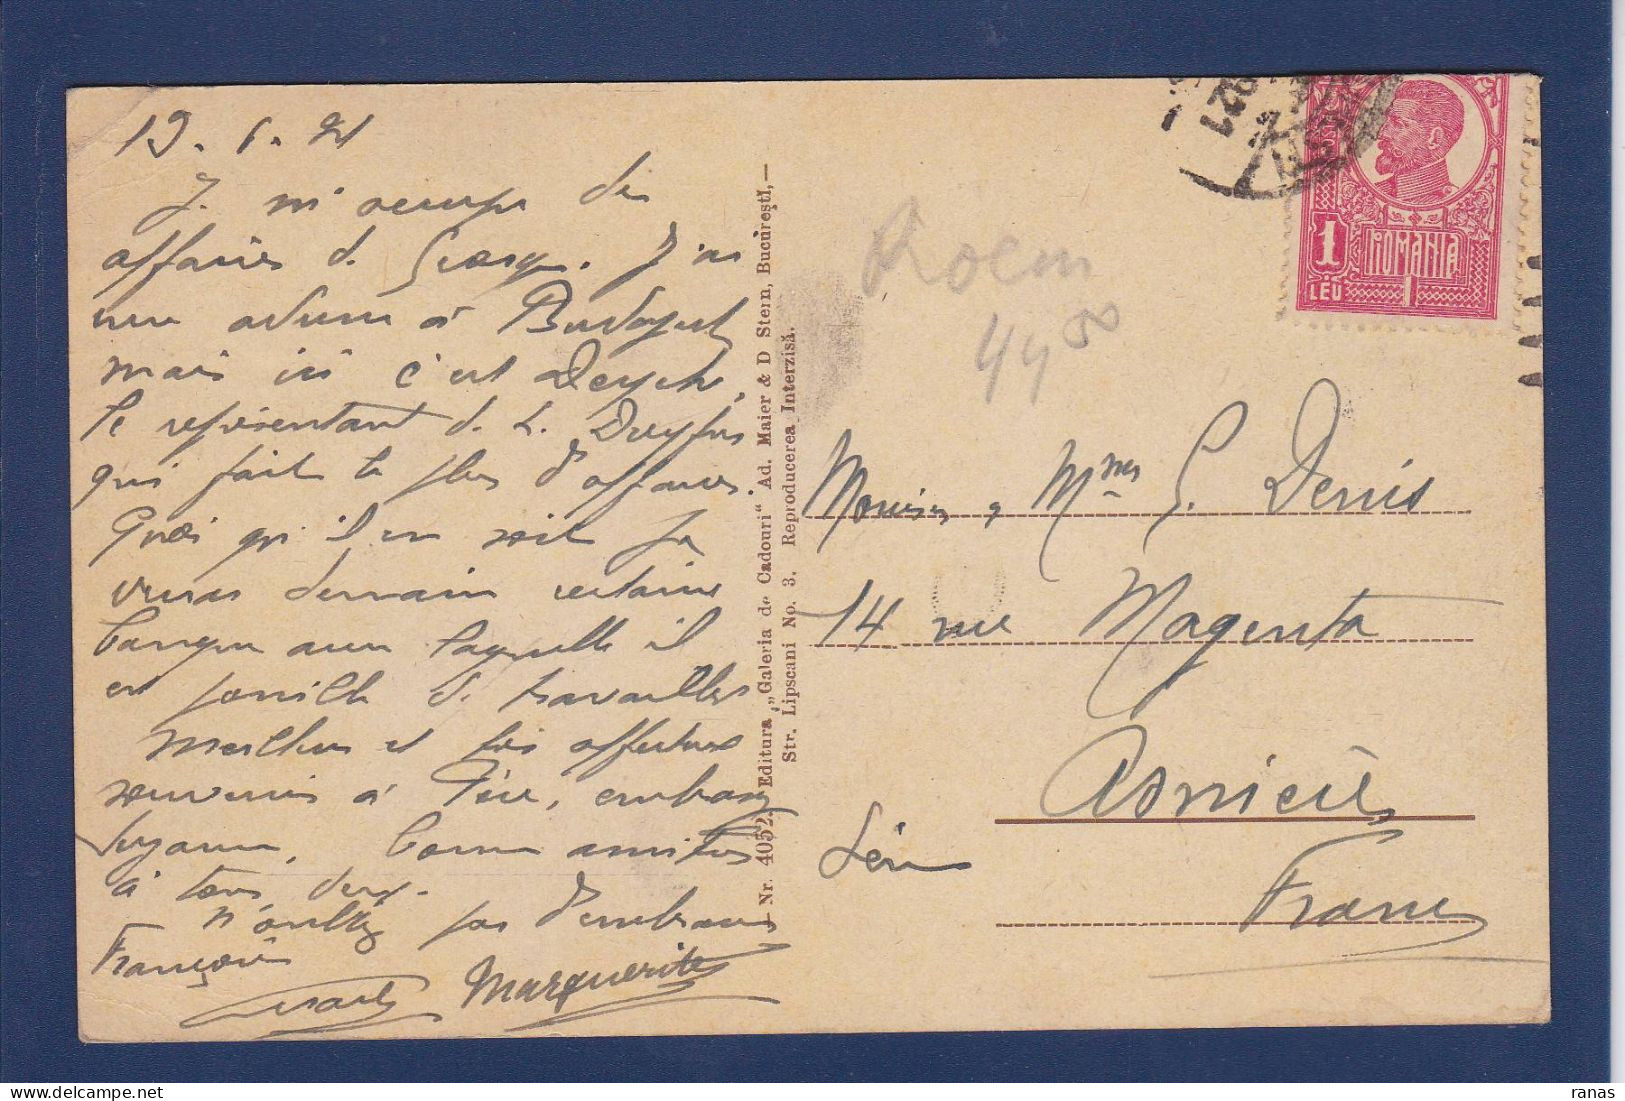 19.6.21
J. m'occupe des
affaires de George. J'ai
une adresse à Budapest
mais ici c'est
le représentant d. L. Dreyfus
qui fait le plus d'affaires.
Quoi qu'il en soit je
verrai demain certaine
banque avec laquelle il
est possible de travailler
Meilleurs et très affectueux
souvenirs à Père, embrassez
Suzanne, bonnes amitiés
à tous deux.
N'oubliez pas d'embrasser
Françoise
Charles Marguerite
Nr. 4052. Editura „Galeria de Cadouri“ Ad. Maier & D Stern, Bucureşti,—
Str. Lipscani No. 3. Reproducerea Interzisă.
921
1
LEU
ROMANIA
Roem
44 50
Monsieur & Mmes G. Denis
14 rue Magenta
Asnières
Seine
France
ranas